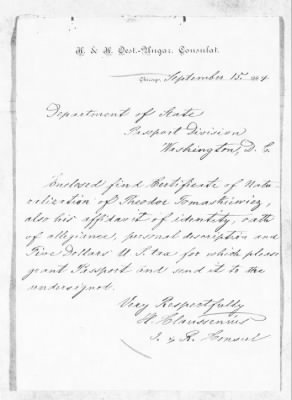 K. & K. Oest.-Ungar. Consulat.
Chicago, September 15. 1884
Department of State
Passport Division
Washington, D. C.
Enclosed find Certificate of Natu-
ralization of Theodor Tomaskiewicz,
also his affidavit of identity, oath
of allegiance, personal description and
Five Dollars U S for which please
grant Passport and send it to the
undersigned.
Very Respectfully
H Claussenius
I. & R. Consul